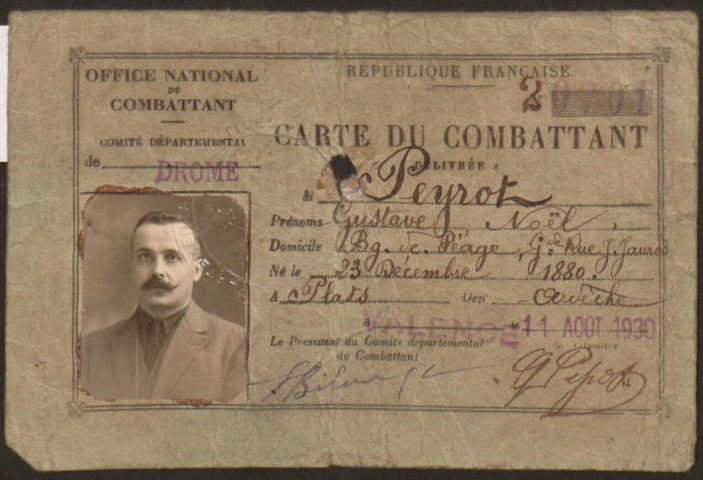 OFFICE NATIONAL
DU
COMBATTANT
COMITÉ DÉPARTEMENTAL
de DROME
RÉPUBLIQUE FRANÇAISE
2
CARTE DU COMBATTANT
DÉLIVRÉE à
M Peyrot
Prénoms Gustave, Noël
Domicile Bg. de Péage, Gde Rue J. Jaurès
Né le 23 Décembre 1880.
A Plats Dép. Ardèche
A VALENCE le 11 AOÛT 1930
Le Président du Comité départemental
du Combattant
Le Titulaire
G Peyrot